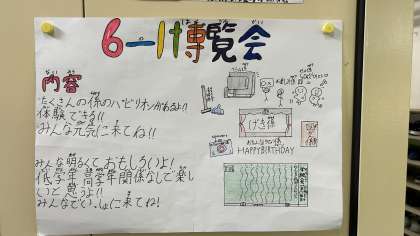 6-1博覧会
内容
たくさんの係のパビリオンがあるよ!!
体験できる!!
みんな元気に来てね!!
みんな明るくておもしろいよ!
低学年高学年関係なしで楽し
いと思うよ!
みんなでいっしょに来てね!
げき係
HAPPYBIRTHDAY